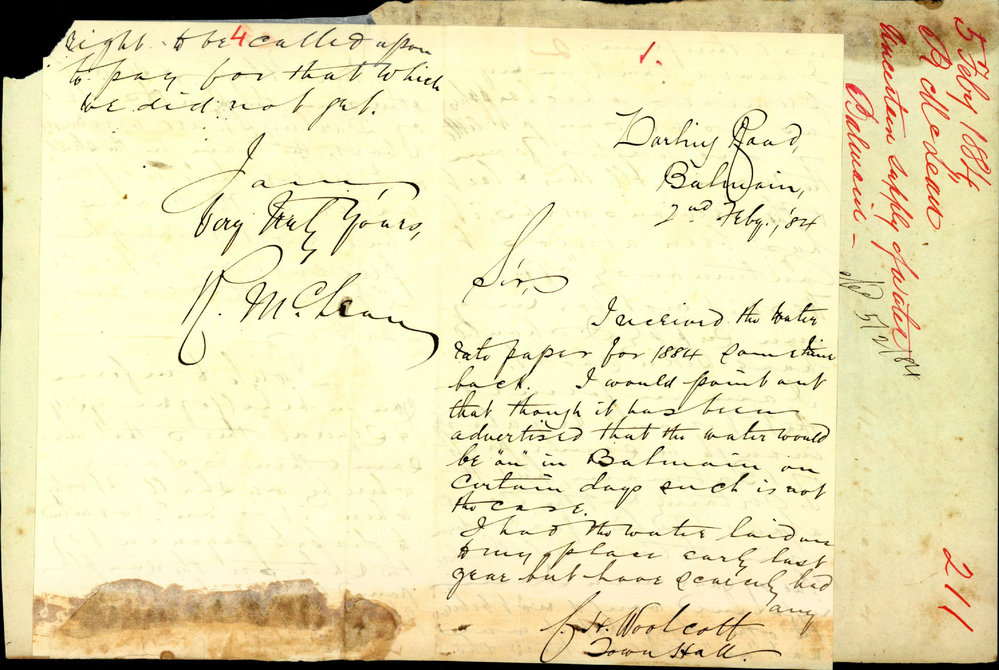 1.
Darling Road,
Balmain,
2nd Feby., '84
Sir,
I received the Water
rate paper for 1884 sometime
back. I would point out
that though it has been
advertised that the water would
be "on" in Balmain on
certain days such is not
the case.
I had the water laid on
to my place early last
year but have scarcely had
any
C. H. Woolcott
Town Hall.
4
right to be called upon
to pay for that which
we did not get.
I am
Very truly Yours,
R. McLean
5 Feby 1884
R McLean
Uncertain supply of water
Balmain -
5/2/84
211